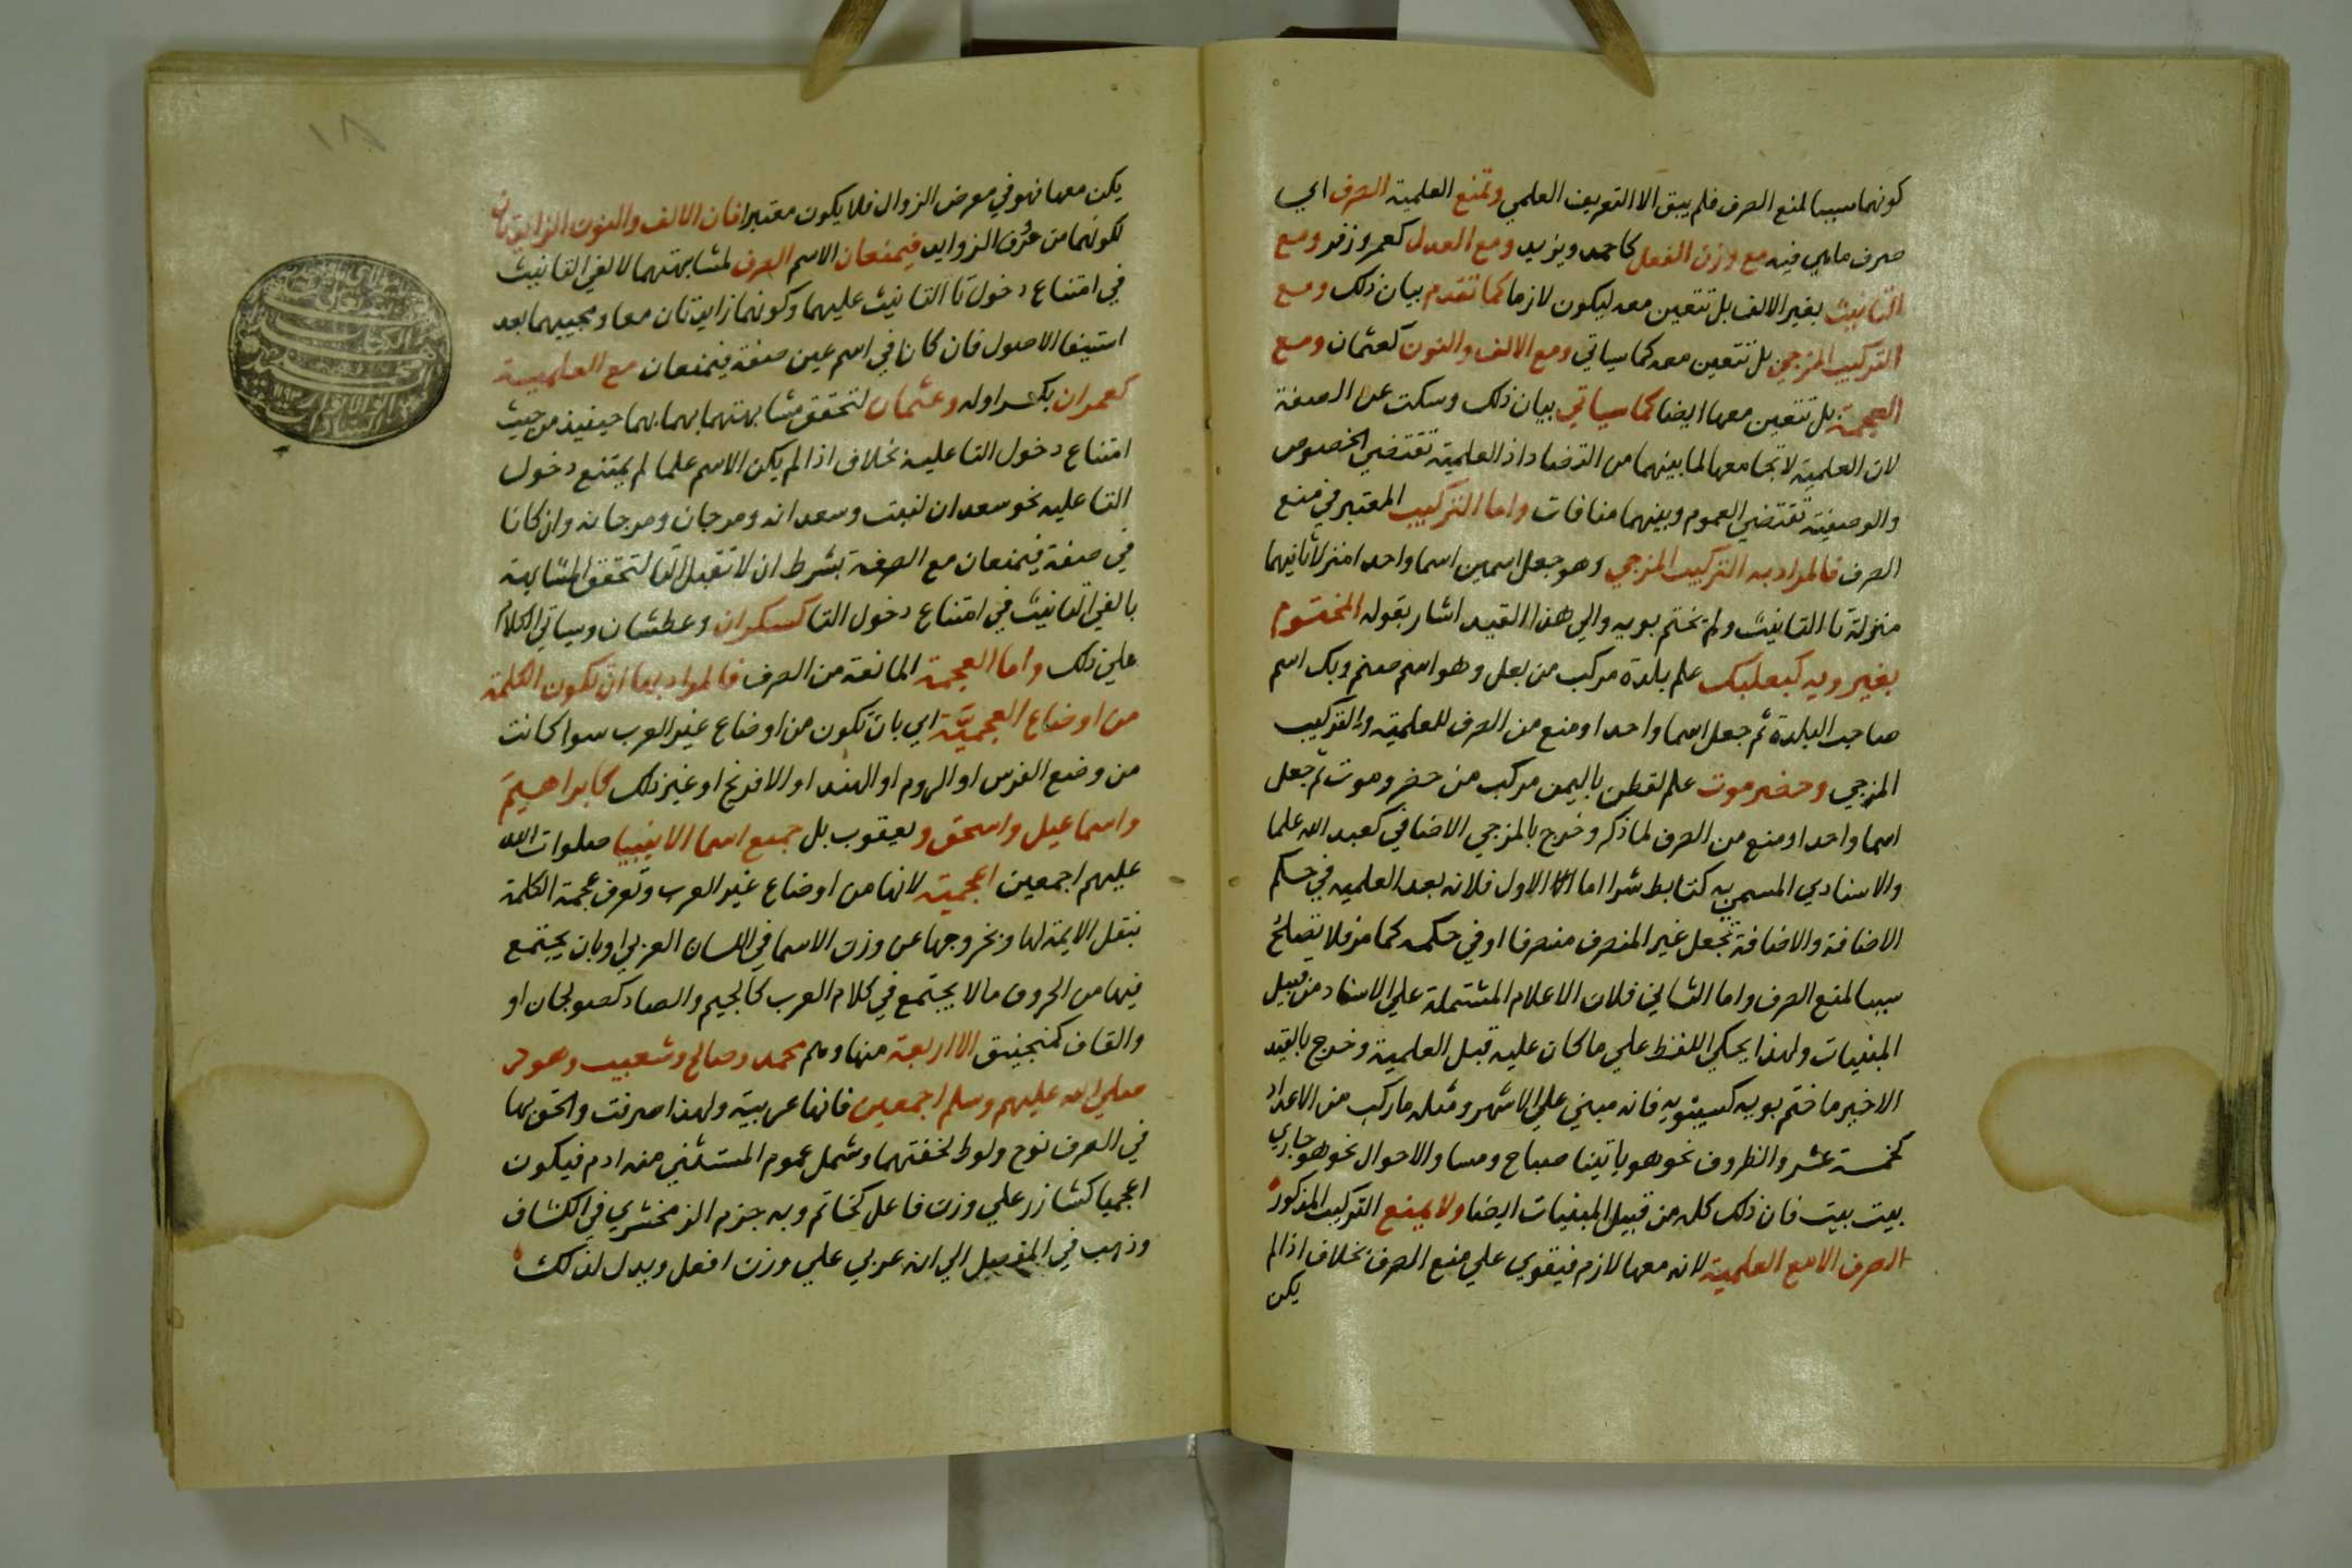 كونهما سببا لمنع الصرف فلم يبق الا التعريف العلمي وتمنع العلمية الصرف اي
صرف ما هي فيه مع وزن الفعل كاحمد ويزيد ومع العدل كعمر وزفر ومع
التانيث بغير الالف بل تتعين معه ليكون لازما كما تقدم بيان ذلك ومع
التركيب المزجي بل تتعين معه كما سياتي ومع الالف والنون كعثمان ومع
العجمة بل تتعين معها ايضا كما سياتي بيان ذلك وسكت عن الصفة
لان العلمية لا تجامعها لما بينهما من التضاد اذ العلمية تقتضي الخصوص
والوصفية تقتضي العموم وبينهما منافات واما التركيب المعتبر في منع
الصرف فالمراد به التركيب المزجي وهو جعل اسمين اسما واحدا منزلا ثانيهما
منزلة تا التانيث ولم يختم بويه والي هذا القيد اشار بقوله المختوم
بغير ويه كبعلبك علم بلدة مركب من بعل وهو اسم صنم وبك اسم
صاحب البلدة ثم جعل اسما واحدا ومنع من الصرف للعلمية والتركيب
المزجي وحضرموت علم لقطن باليمن مركب من حضر وموت ثم جعل
اسما واحدا ومنع من الصرف لما ذكر وخرج بالمزجي الاضافي كعبد الله علما
والاسنادي المسمي به كتابط شرا اما الاول فلانه بعد العلميه في حكم
الاضافة والاضافة تجعل غير المنصرف منصرفا او في حكمه كما مر فلا تصلح
سببا لمنع الصرف واما الثاني فلان الاعلام المشتملة علي الاسناد من قبيل
المبنيات ولهذا يحكي اللفظ علي ما كان عليه قبل العلمية وخرج بالقيد
الاخير ما ختم بويه كسيبويه فانه مبني علي الاشهر ومثله ما ركب من الاعداد
كخمسة عشر والظروف نحو هو ياتينا صباح ومسا والاحوال نحو هو جاري
بيت بيت فان ذلك كله من قبيل المبنيات ايضا ولا يمنع التركيب المذكور
الصرف الا مع العلمية لانه معها لازم فيقوي علي منع الصرف بخلاف اذا لم
يكن
١٨
يكن معها فهو في معرض الزوال فلا يكون معتبرا فان الالف والنون الزايدتان
لكونهما من حروف الزوايد فيمنعان الاسم الصرف لمشابهتهما لالفي التانيث
في امتناع دخول تا التانيث عليهما وكونهما زايدتان معا ومجييهما بعد
استيفا الاصول فان كانا في اسم غير صفة فيمنعان مع العلمية
كعمران بكسر اوله وعثمان لتحقق مشابهتهما بهما حينيذ من حيث
امتناع دخول التا عليه بخلاف اذا لم يكن الاسم علما لم يمتنع دخول
التا عليه نحو سعدان لنبت وسعدانه ومرجان ومرجانه وان كانا
في صفة فيمنعان مع الصفة بشرط ان لا تقبل التا لتحقق المشابهة
بالفي التانيث في امتناع دخول التا كسكران وعطشان وسياتي الكلام
علي ذلك واما العجمة المانعة من الصرف فالمراد بها ان تكون الكلمة
من اوضاع العجمية اي بان تكون من اوضاع غير العرب سوا كانت
من وضع الفرس او الروم او الهند او الافرنج او غير ذلك كابراهيم
واسماعيل واسحق ويعقوب بل جميع اسما الانبيا صلوات الله
عليهم اجمعين اعجمية لانها من اوضاع غير العرب وتعرف عجمة الكلمة
بنقل الايمة لها وبخروجها عن وزن الاسما في اللسان العربي او بان يجتمع
فيها من الحروف ما لا يجتمع في كلام العرب كالجيم والصاد كصولجان او
والقاف كمنجنيق الا اربعة منها وهم محمد وصالح وشعيب وهود
صلي الله عليهم وسلم اجمعين فانها عربية ولهذا صرفت والحق بها
في الصرف نوح ولوط لخفتهما وشمل عموم المستثني منه ادم فيكون
اعجميا كشازر علي وزن فاعل كخاتم وبه جزم الزمخشري في الكشاف
وذهب في المفصل الي انه عربي علي وزن افعل ويدل لذلك